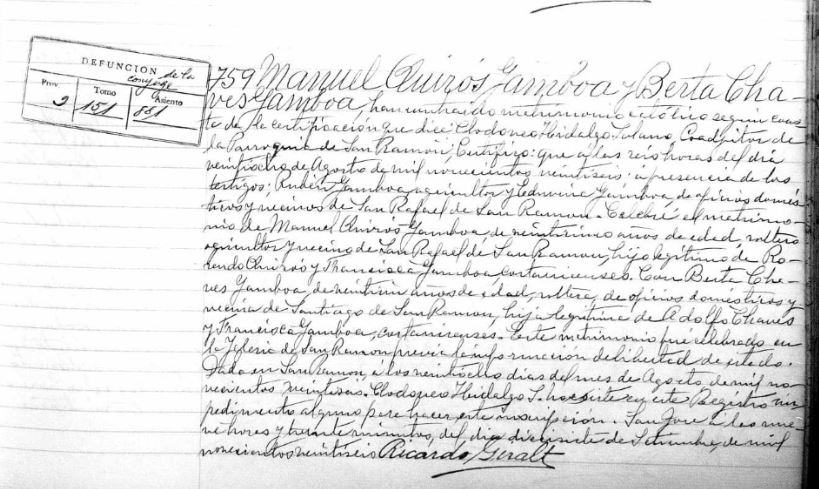 DEFUNCION de la
conyuge
Prov Tomo Asiento
2 151 881
759 Manuel Quirós Gamboa y Berta Cha-
ves Gamboa, han contraido matrimonio católico según cons-
ta de la certificación que dice: Clodoveo Hidalgo Solano, Coadjutor de
la Parroquia de San Ramón, Certifico: que a las seis horas del dia
veintiocho de Agosto de mil novecientos veintiseis: a presencia de los
testigos: Rubén Gamboa, agricultor y Edmina Gamboa, de oficios domés-
ticos y vecinos de San Rafael de San Ramon. Celebré el matrimo-
nio de Manuel Quirós Gamboa de años de edad, soltero
agricultor y vecino de San Rafael de San Ramon, hijo legítimo de Ro-
sendo Quirós y Francisca Gamboa costarricenses. Con Berta Cha-
ves Gamboa, de veintiun años de edad, soltera, de oficios domésticos y
vecina de Santiago de San Ramon, hija legitima de Adolfo Chaves
y Francisca Gamboa, costarricenses. Este matrimonio fue celebrado en
la Iglesia de San Ramon previa la información de libertad de estado.
Dada en San Ramon, á los veintiocho dias del mes de Agosto de mil no-
vecientos veintiseis. Clodoveo Hidalgo S. No existe en este Registro im-
pedimento alguno para hacer esta inscripción. San José a las nue-
ve horas y treinta minutos, del dia diecisiete de Setiembre, de mil
novecientos veintiseis Ricardo Giralt